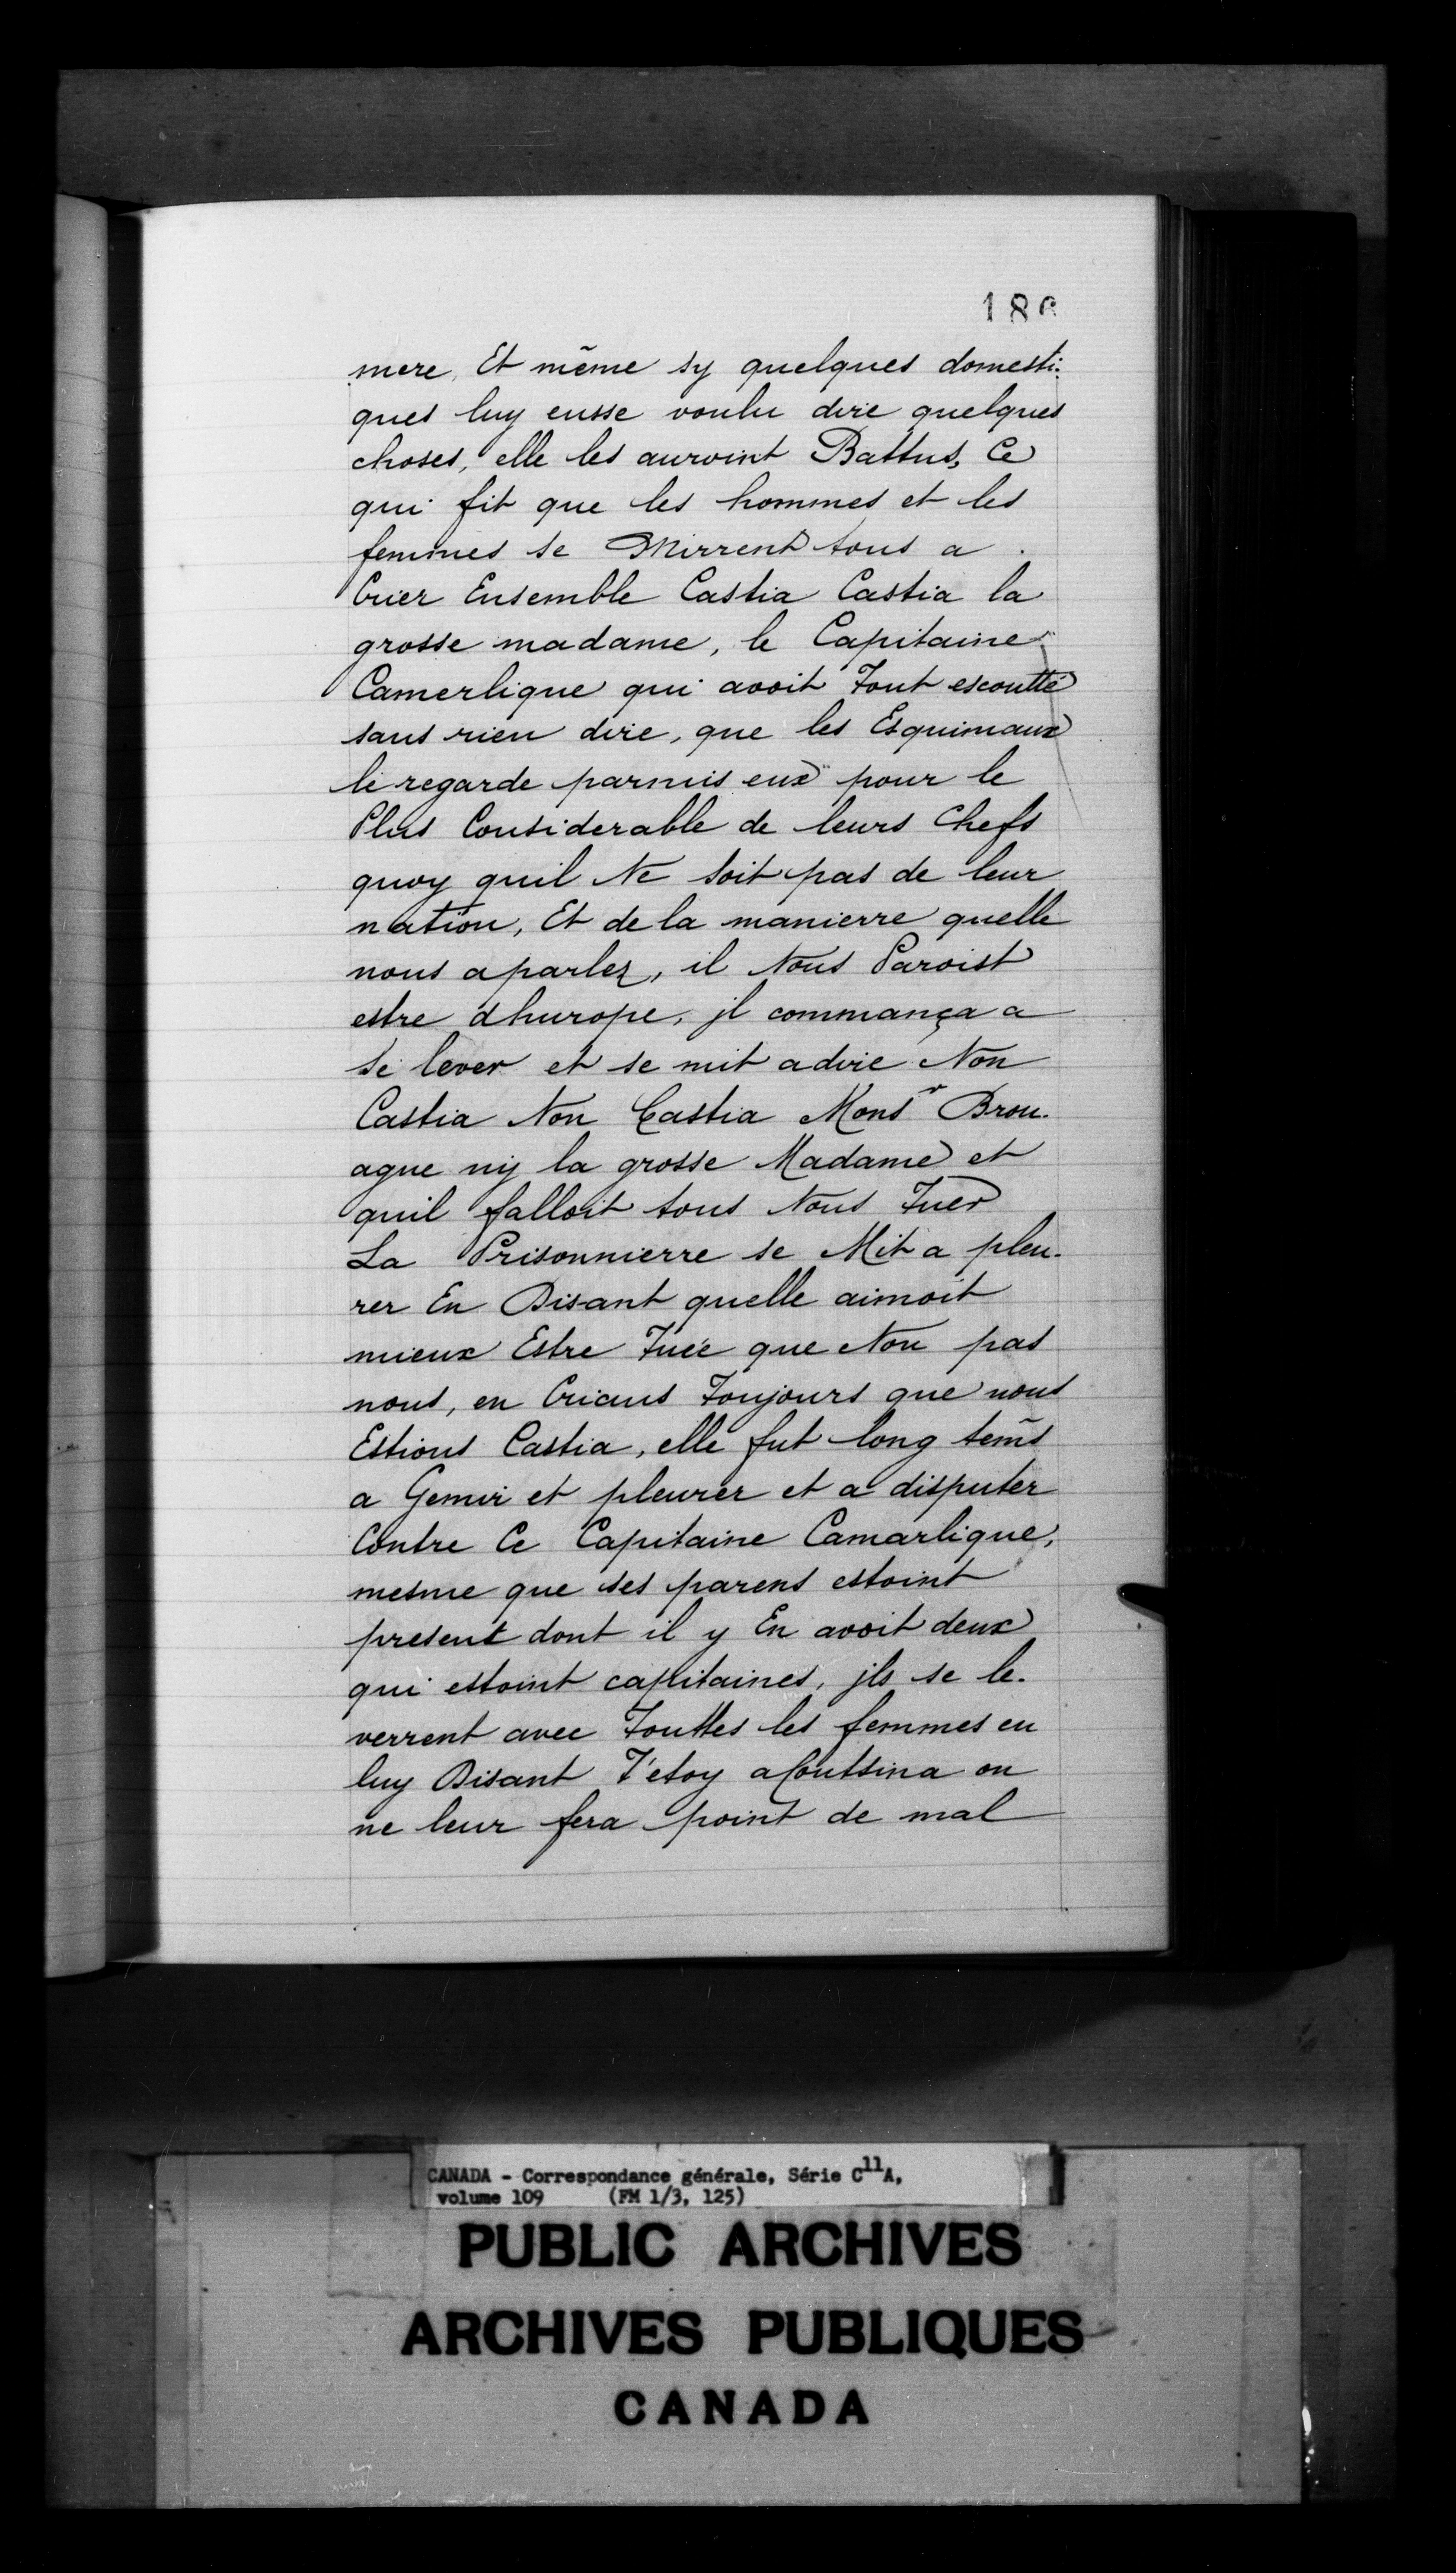 186
mere, Et même sy quelques domesti-
ques luy eusse voulu dire quelques
choses, elle les auroint Battus, Ce
qui fit que les hommes et les
femmes se Mirrent tous a
Crier Ensemble Castia Castia la
grosse madame, le Capitaine
Camerlique qui avoit Tout escoutté
sans rien dire, que les Esquimaux
le regarde parmis eux pour le
Plus Considerable de leurs Chefs
quoy quil Ne soit pas de leur
nation, Et de la manierre quelle
nous a parlez, il Nous Paroist
estre dhurope, jl commança a
se lever et se mit a dire Non
Castia Non Castia Monsr Brou-
ague ny la grosse Madame et
quil falloit tous Nous Tuer
La Prisonnierre se Mit a pleu-
rer En Disant quelle aimoit
mieux Estre Tuée que Non pas
nous, en Crians Toujours que nous
Estions Castia, elle fut long tem̃s
a Gemir et pleurer et a disputer
Contre Ce Capitaine Camarlique,
mesme que ses parens estoint
present dont il y En avoit deux
qui estoint capitaines, jls se le-
verrent avec Touttes les femmes en
luy Disant T'etoy on
ne leur fera point de mal
CANADA - Correspondance générale, Série C11A,
volume 109 (FM 1/3, 125)
PUBLIC ARCHIVES
ARCHIVES PUBLIQUES
CANADA